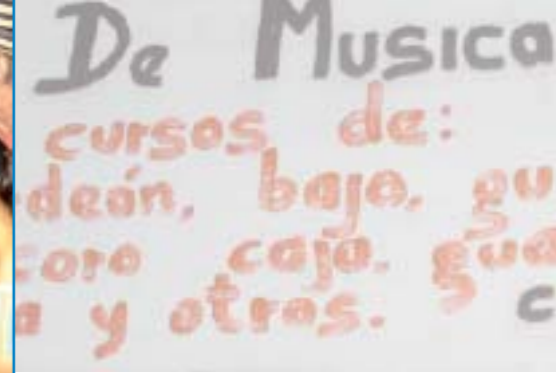 De Musica
cursos de:
deón, bajo, gu
oro caja. gua
a y otras. c